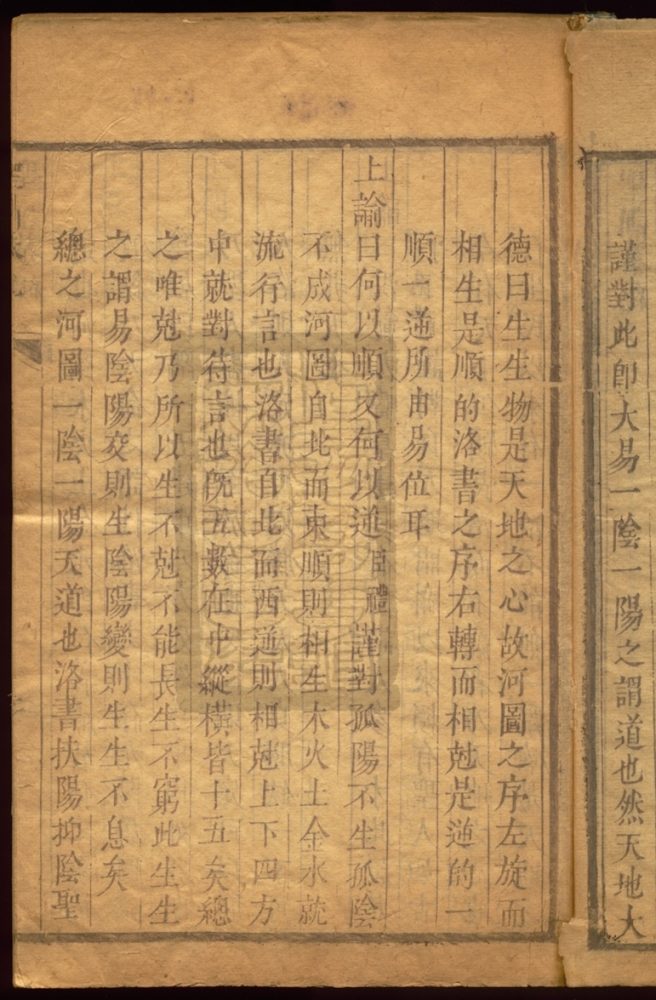 謹對此卽大易一陰一陽之謂道也然天地大
德曰生生物是天地之心故河圖之序左旋而
相生是順的洛書之序右轉而相尅是逆的一
順一逆所由易位耳
上諭曰何以順又何以逆臣禮謹對孤陽不生孤陰
不成河圖自北而東順則相生木火土金水就
流行言也洛書自北而西逆則相尅上下四方
中就對待言也旣五數在中縱橫皆十五矣總
之唯尅乃所以生不尅不能長生不窮此生生
之謂易陰陽交則生陰陽變則生生不息矣
總之河圖一陰一陽天道也洛書扶陽抑陰聖